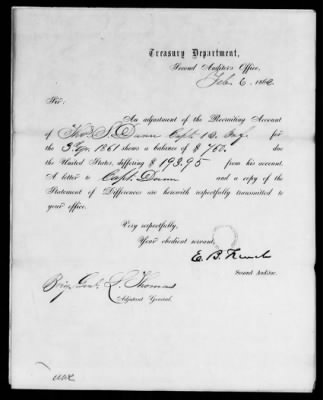 Treasury Department,
Second Auditor's Office,
Feb. 6, 1862
Sir:
An adjustment of the Recruiting Account
of Thos. S. Dunn Capt. 12 Inf. for
the 3 qr. 1861 shows a balance of $ 760. due
the United States, differing $ 193.95 from his account.
A letter to Capt. Dunn and a copy of the
Statement of Differences are herewith respectfully transmitted to
your office.
Very respectfully,
Your obedient servant,
E. B. French
Second Auditor.
Brig. Genl. L. Thomas
Adjutant General.